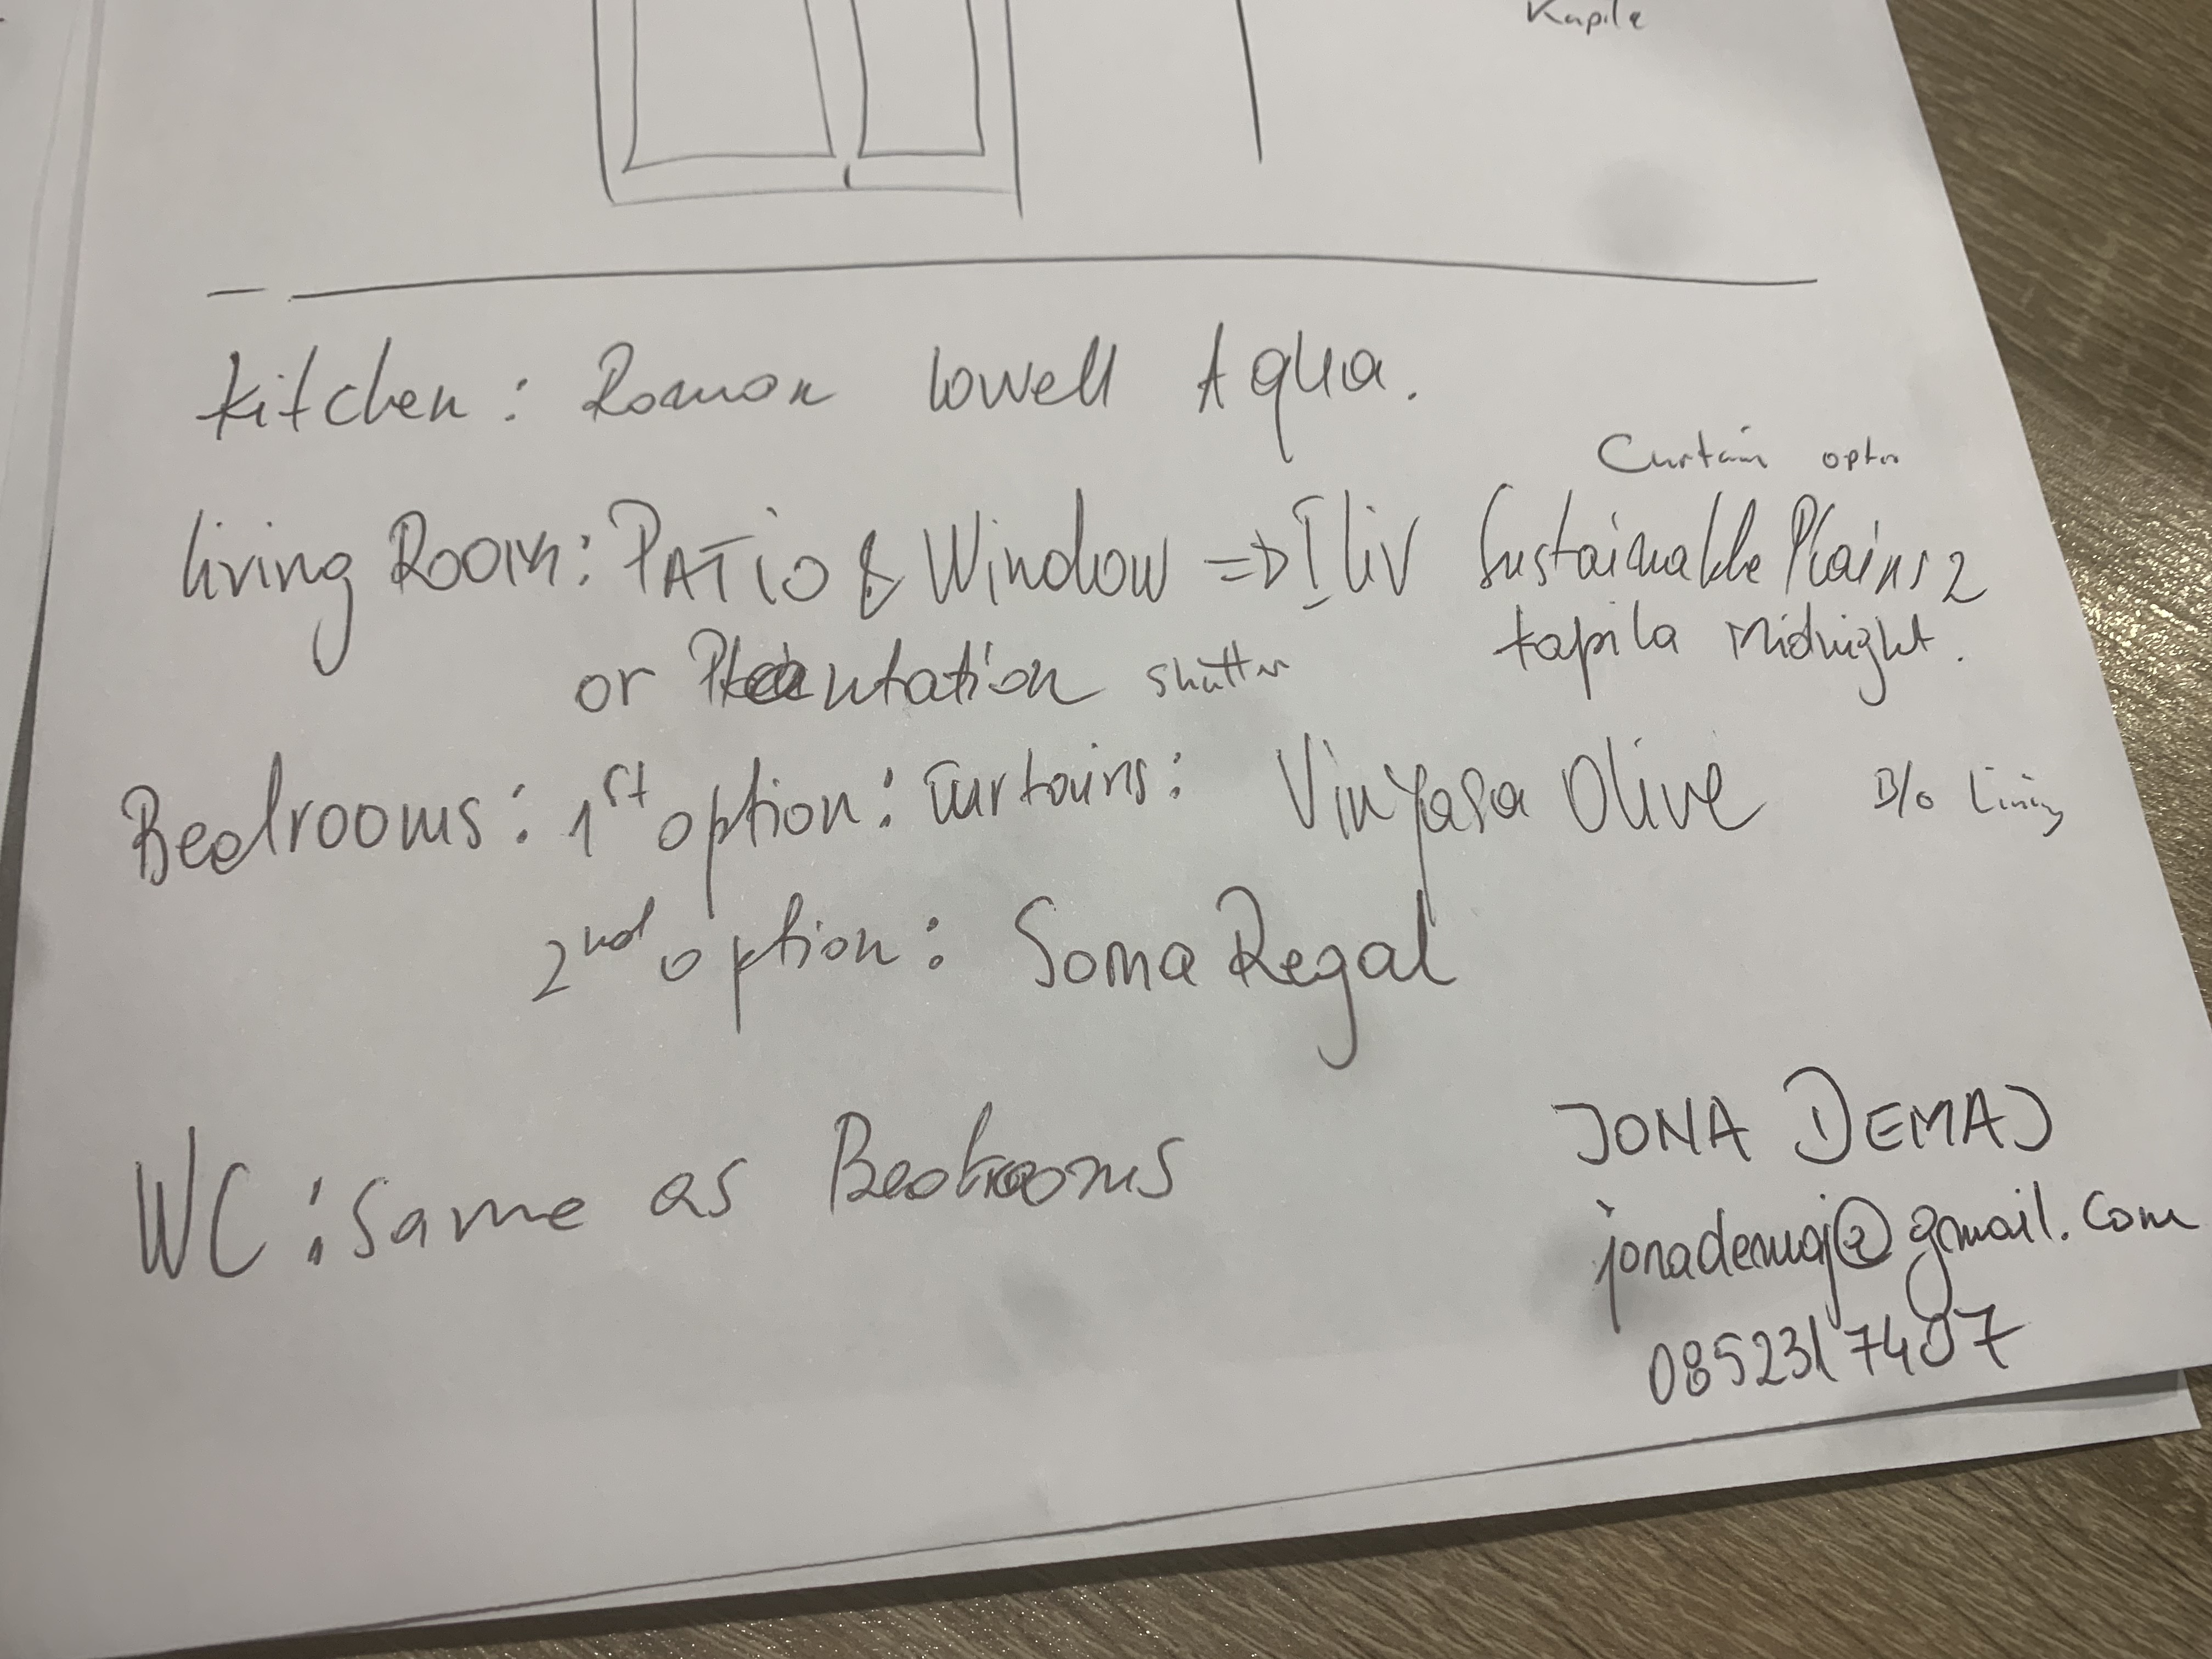 Kapila
Kitchen: Roman Lowell Aqua.
Curtain optn
Living Room: PATiO & Window => Iliv Sustainable Plains 2
or Plantation shutter Kapila Midnight.
Bedrooms: 1st option: Curtains: Vinyasa Olive B/o Lining
2nd option: Soma Regal
WC: Same as Bedrooms
JONA DEMAJ
jonademaj@gmail.com
0852317407